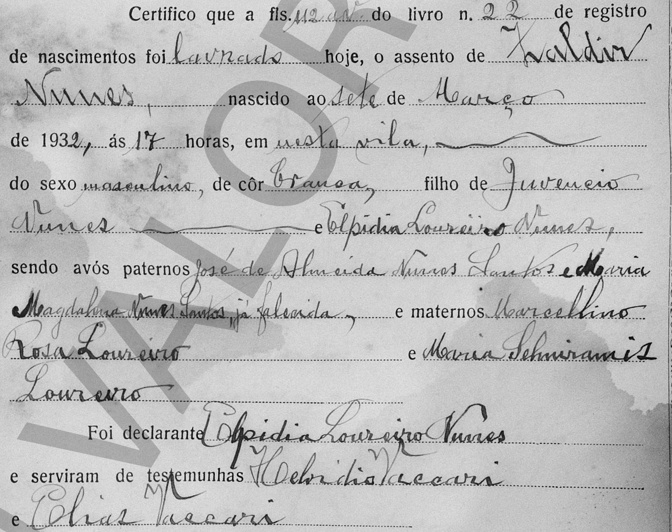 Certifico que a fls. 112 av. do livro n. 22 de registro
de nascimentos foi lavrado hoje, o assento de Zaldir
Nunes, nascido ao sete de Março
de 1932, ás 17 horas, em nesta vila,
do sexo masculino, de côr branca, filho de Juvencio
Nunes e Elpidia Loureiro Nunes,
sendo avós paternos José de Almeida Nunes Santos e Maria
Magdalena Nunes Santos, já falecida, e maternos Marcellino
Rosa Loureiro e Maria Sehmiramis
Loureiro
Foi declarante Elpidia Loureiro Nunes
e serviram de testemunhas Helvidio Vaccari
e Elias Vaccari
VALOR